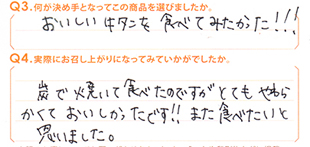 Q3.何が決め手となってこの商品を選びましたか。
おいしい牛タンを食べてみたかった!!!
Q4.実際にお召し上がりになってみていかがでしたか。
炭で焼いて食べたのですがとてもやわら
かくておいしかったです!!また食べたいと
思いました。